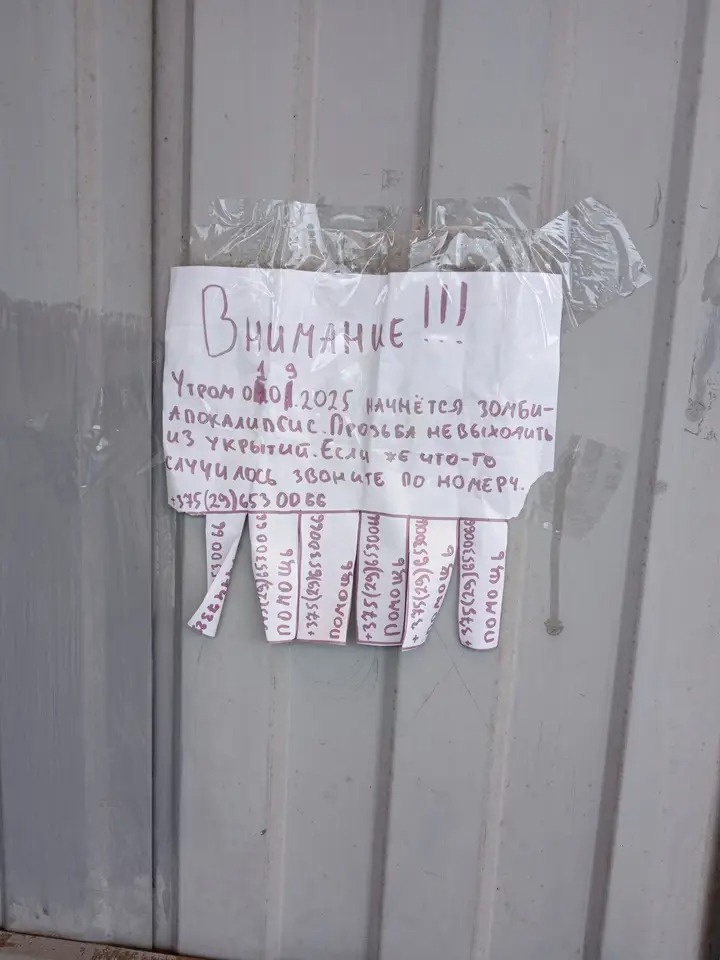 Внимание!!!
1 9
Утром 0 0 .2025 начнётся зомби-
апокалипсис. Прозьба не выходить
из укрытий. Если же что-то
случилось звоните по номеру.
+375(29)6530066
530066
6530066
помощь
+375(29)6530066
помощь
+375(29)6530066
помощь
+375(29)6530066
помощь
+375(29)6530066
помощь